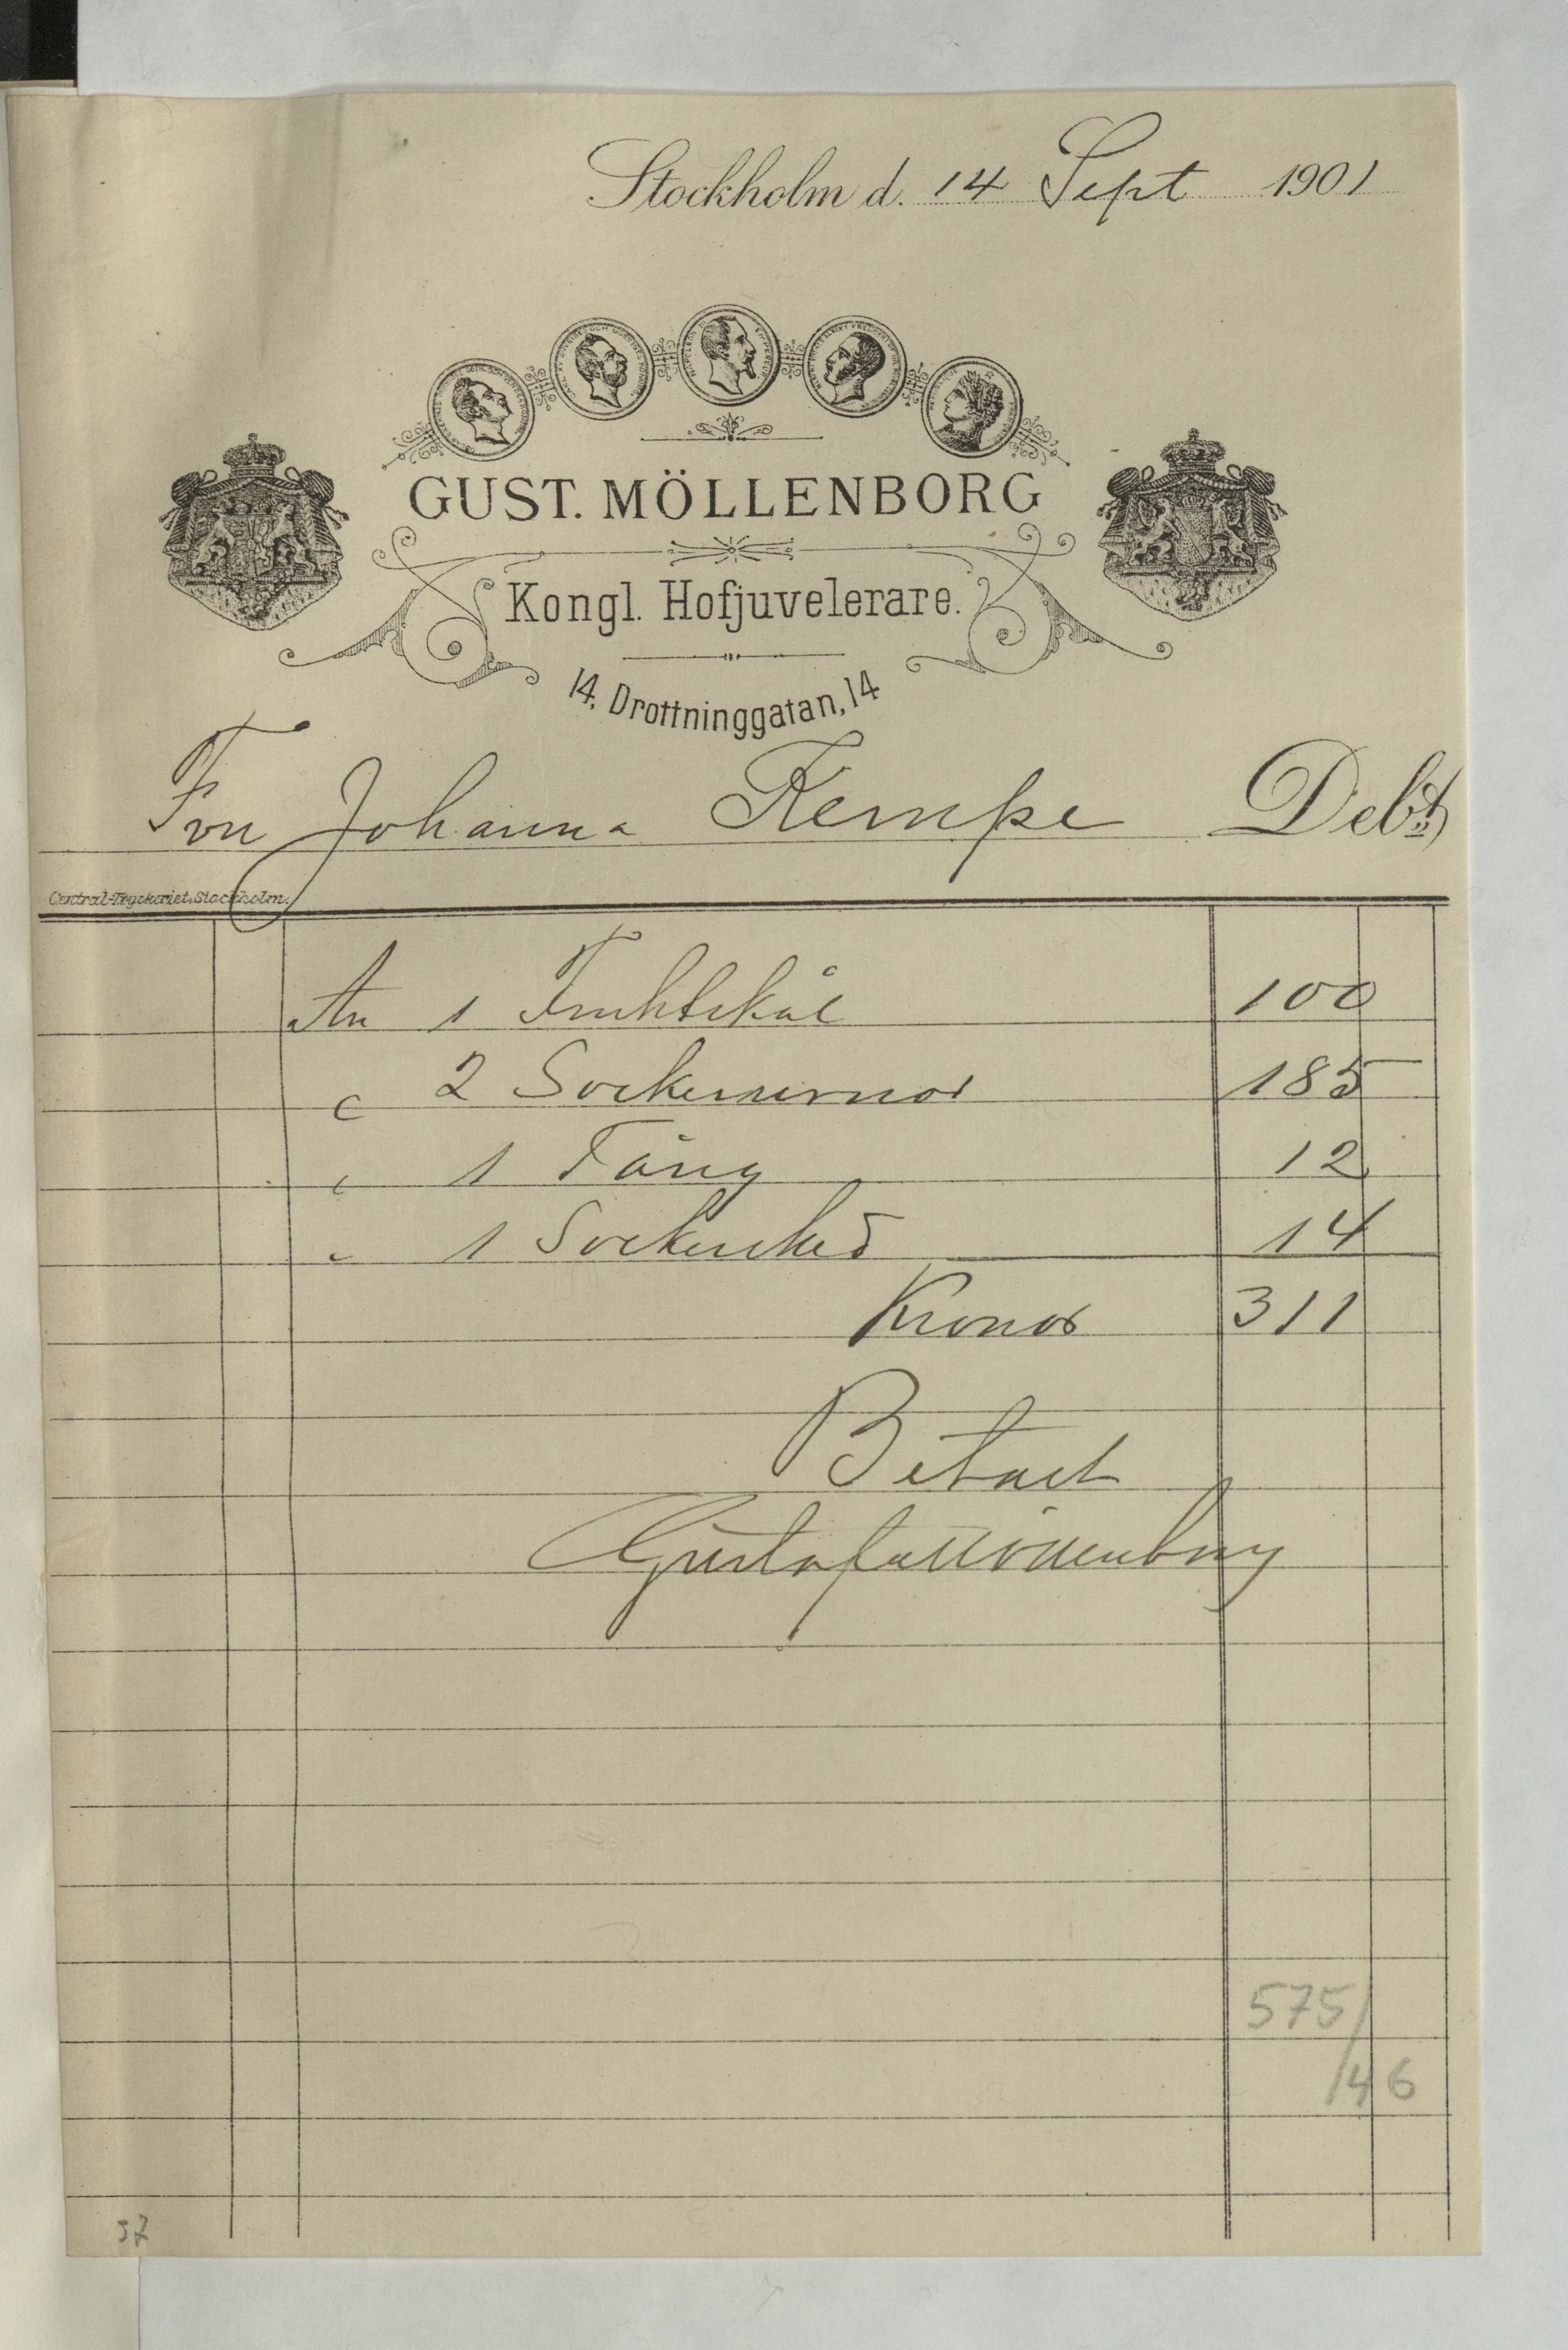 Stockholm d. 14 Sept 1901
GUST. MÖLLENBORG
Kongl. Hofjuvelerare.
14, Drottninggatan, 14
Fru Johanna Kempe Debt
Central-Tryckeriet, Stockholm.
An 1 Fruktskål 100
" 2 185
" 1 Tång 12
" 1 Sockersked 14
Kronor 311
Betalt
Gustaf Möllenborg
575/
/46
57